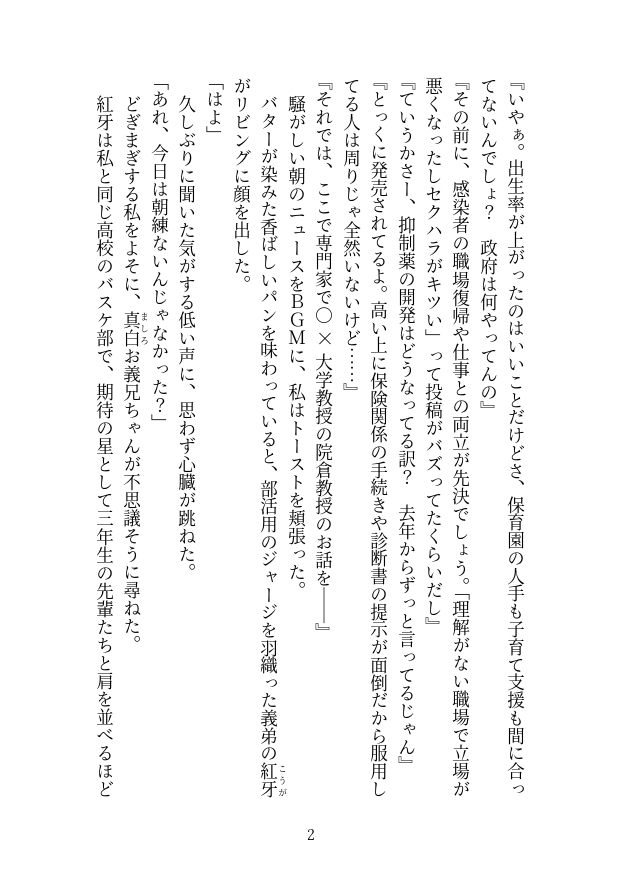 『いやぁ。出生率が上がったのはいいことだけどさ、保育園の人手も子育て支援も間に合っ
てないんでしょ？　政府は何やってんの』
『その前に、感染者の職場復帰や仕事との両立が先決でしょう。「理解がない職場で立場が
悪くなったしセクハラがキツい」って投稿がバズってたくらいだし』
『ていうかさー、抑制薬の開発はどうなってる訳？　去年からずっと言ってるじゃん』
『とっくに発売されてるよ。高い上に保険関係の手続きや診断書の提示が面倒だから服用し
てる人は周りじゃ全然いないけど……』
『それでは、ここで専門家で〇×大学教授の院倉教授のお話を――』
　騒がしい朝のニュースをＢＧＭに、私はトーストを頬張った。
　バターが染みた香ばしいパンを味わっていると、部活用のジャージを羽織った義弟の紅牙こうが
がリビングに顔を出した。
「はよ」
　久しぶりに聞いた気がする低い声に、思わず心臓が跳ねた。
「あれ、今日は朝練ないんじゃなかった？」
　どぎまぎする私をよそに、真白ましろお義兄ちゃんが不思議そうに尋ねた。
　紅牙は私と同じ高校のバスケ部で、期待の星として三年生の先輩たちと肩を並べるほど
2